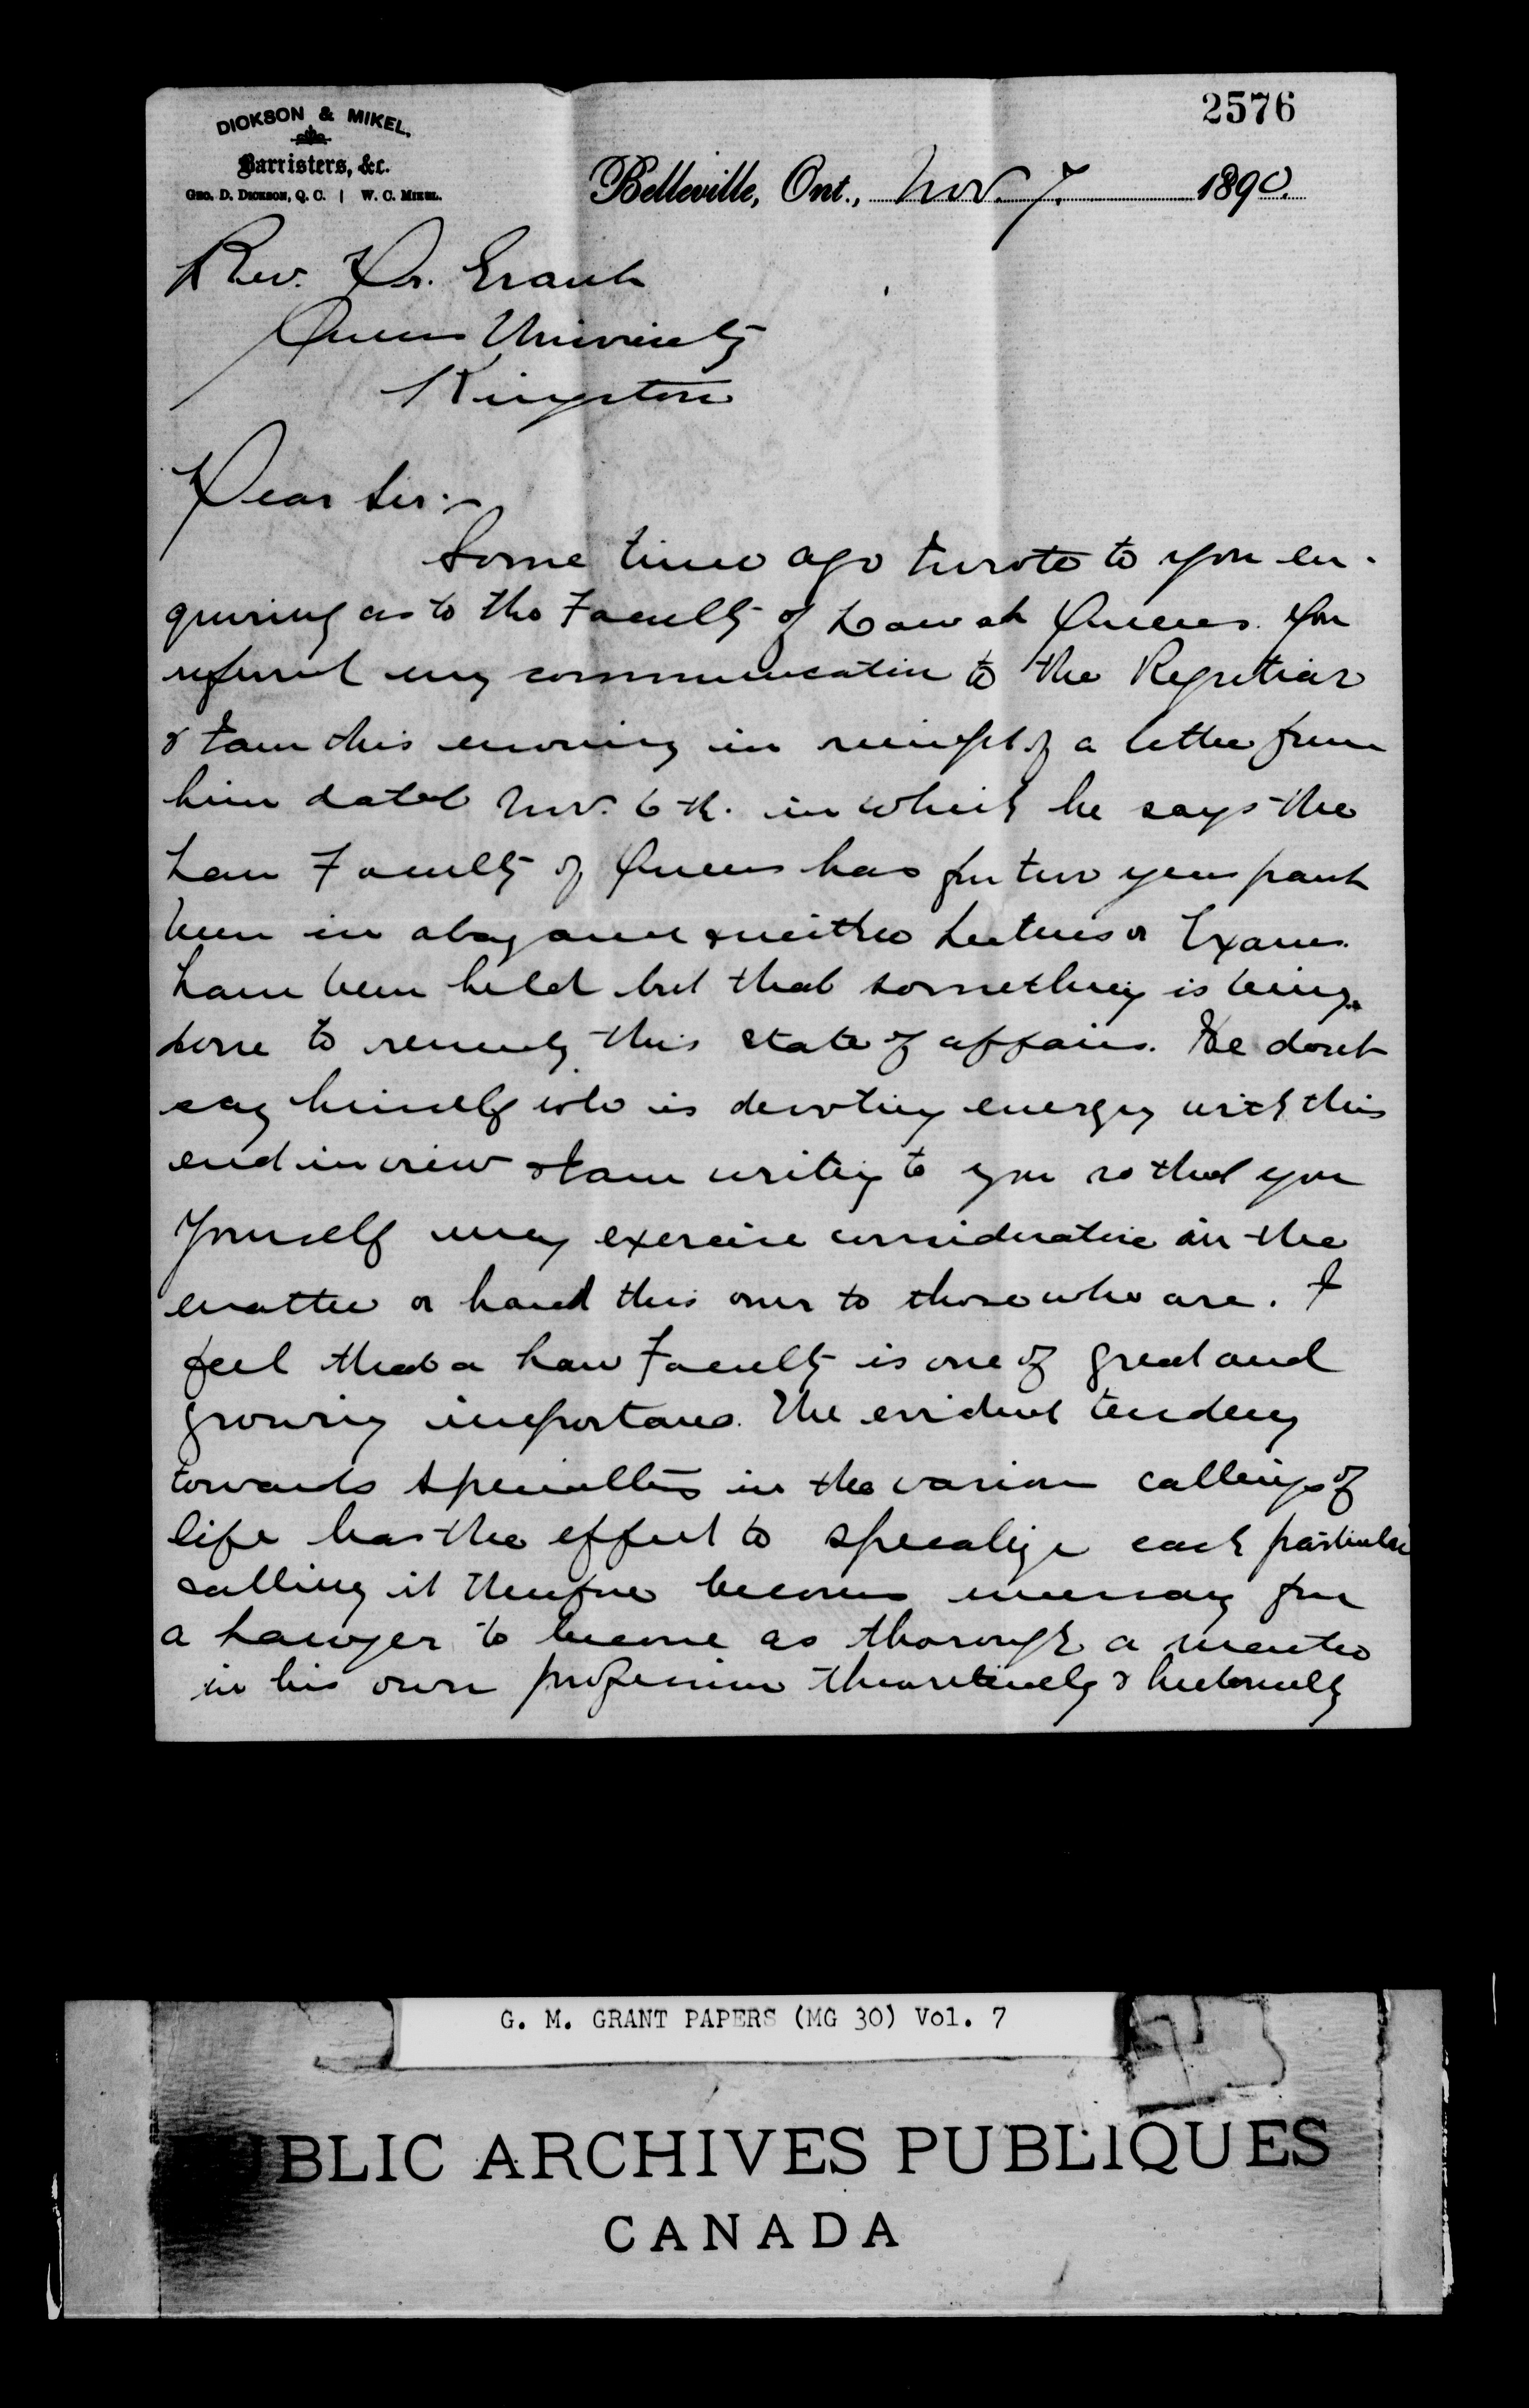 2576
DICKSON & MIKEL,
Barristers, &c.
GEO. D. DICKSON, Q. C. | W. C. MIKEL.
Belleville, Ont., Nov. 7. 1890.
Rev. Dr. Grant
Queens University
Kingston
Dear Sir:-
Some time ago I wrote to you en-
quiring as to the Faculty of Law at Queens. You
referred my communication to the Registrar
& I am this morning in receipt of a letter from
him dated Nov. 6th. in which he says the
Law Faculty of Queens has for two years past
been in abeyance & neither Lectures or Exams.
have been held but that something is being
done to remedy this state of affairs. He dont
say himself who is devoting energy with this
end in view & I am writing to you so that you
yourself may exercise consideration in the
matter or hand this over to those who are. I
feel that a Law Faculty is one of great and
growing importance. The evident tendency
towards specialties in the various callings of
life has the effect to specalize each particular
calling it therefore becomes necessary for
a Lawyer to become as thorough a master
in his own profession theoretically & historically
G. M. GRANT PAPERS (MG 30) Vol. 7
UBLIC ARCHIVES PUBLIQUES
CANADA